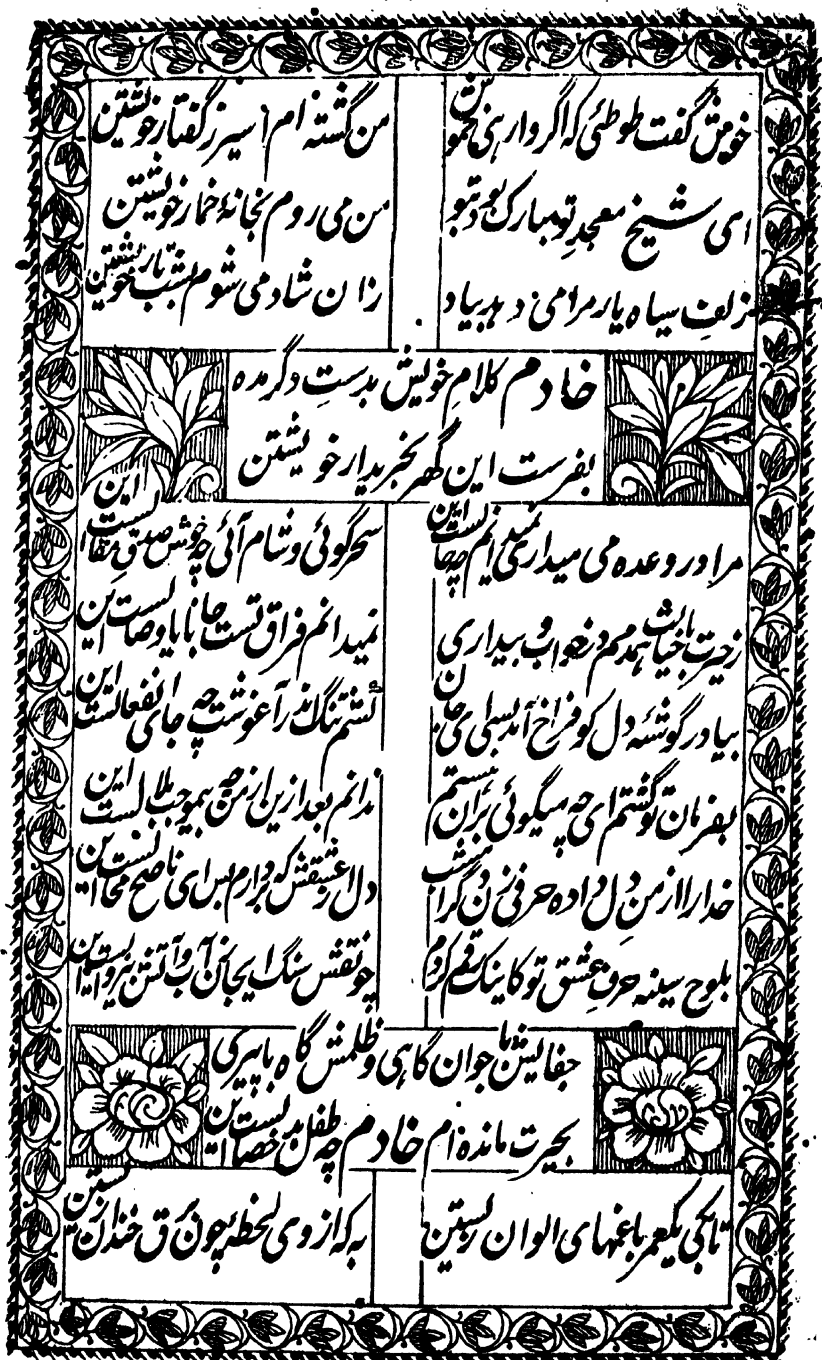 خوش گفت طوطئی که اگر وارهی خموش
من گشته ام اسیر ز گفتار خویشتن
ای شیخ مسجدِ تو مبارک بود بتو
من می روم بخانهٔ خمار خویشتن
زلفِ سیاه یار مرا می دهد بیاد
زان شاد می شوم بشب تار خویشتن
خادم کلامِ خویش بدستِ دگر مده
بفرست این گهر بخریدار خویشتن
مرا در وعده می میداری نمیدانم چه حالست این
سحر گوئی و شام آئی چه خوش صدقِ مقالست این
ز حیرت با خیالت همدمم در خواب و بیداری
نمیدانم فراق تست جانا یا وصالست این
بیا در گوشهٔ دل کو فراخ آمد بسی ای جان
نشستم تنگ اندر آغوشت چه جای انفعالست این
بفرمان تو گشتم ای چه میگوئی بر آن هستم
ندانم بعد ازین از من چه بیموجب ملالست این
خدا را از من دل داده حرفی زن دگر امشب
دل از عشقش که بردارم بس ای ناصح محالست این
بلوح سینه حرفِ عشق تو کاینک رقم کردم
چو نقش سنگ ایجان کن آب و آتش بیزوالست این
جفایش با جوان گاهی و ظلمش گاه با پیری
بحیرت مانده ام خادم چه طفل بد خصالست این
تا بکی یکعمر با غمهای الوان زیستن
به که از وی لحظهٔ چون برق خندان زیستن